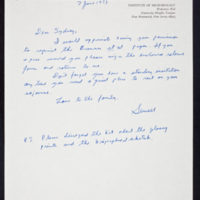 INSTITUTE OF MICROBIOLOGY
7 June 197
Dear Sydney,
I would appreciate having your permission
to reprint the Brenner et al paper. If you
agree would you please sign the enclosed release
form and return to me.
Don't forget you have a standing invitation
any time you need a quiet place to rest on your
sojourns.
Love to the family,
P.S. Please disregard the bit about the glossy
prints and the biographical sketch.